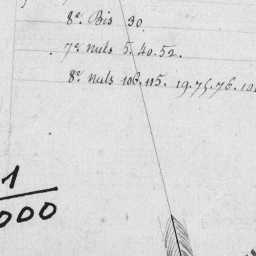 8e. Bis 30.
7e nuls 5. 40. 52.
8e nuls 108. 115. 19. 75. 76.
1
000